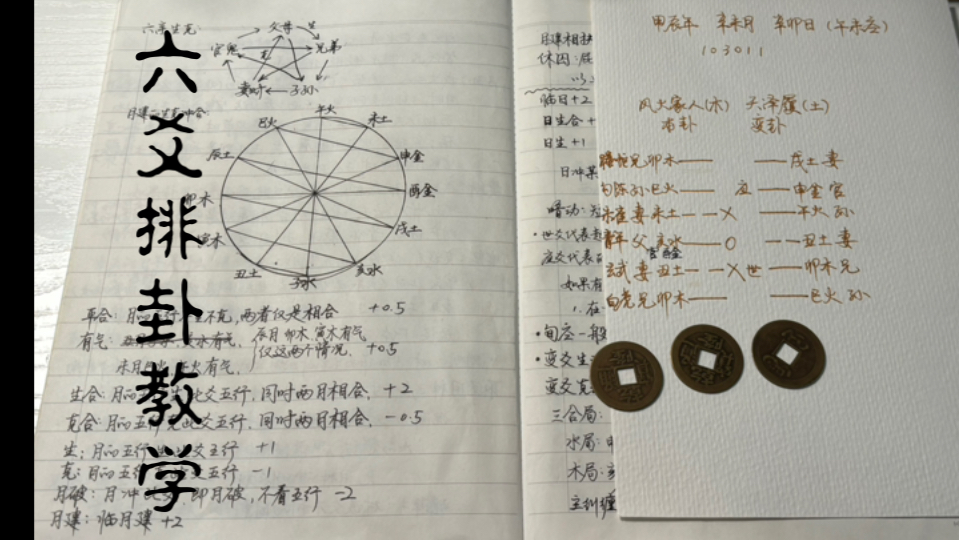 六爻排卦教学
六亲生克
父母 生
官鬼 兄弟
妻财 子孙
午火
巳火 未土
辰土 申金
卯木 酉金
寅木 戌土
丑土 亥水
子水
平合：月 不克，两者仅是相合 +0.5
有气： 有气， 辰月卯木寅木有气
仅这两个情况，+0.5
未月 火有气，
生合：月 此爻五行，同时两月相合，+2
克合：月 此爻五行，同时两月相合，-0.5
生：月 爻五行 +1
克：月 爻五行 -1
月破：月冲 即月破，不看五行 -2
月建：临月建 +2
月建相
休囚：
临日+2
日生合+
日生+1
日冲某
暗动：
·世爻代表
应爻代表
如果有
1.在
·旬空一般
·变爻生
变爻克
三合局：
水局：
木局：
甲辰年 辛未月 辛卯日（午未空）
103011
风火家人(木) 天泽履(土)
本卦 变卦
腾蛇兄卯木 戌土妻
勾陈孙巳火 应 申金官
朱雀妻未土 X 午火孙
青龙父亥水 O 丑土妻
官酉金
玄武妻丑土 X 世 卯木兄
白虎兄卯木 巳火孙